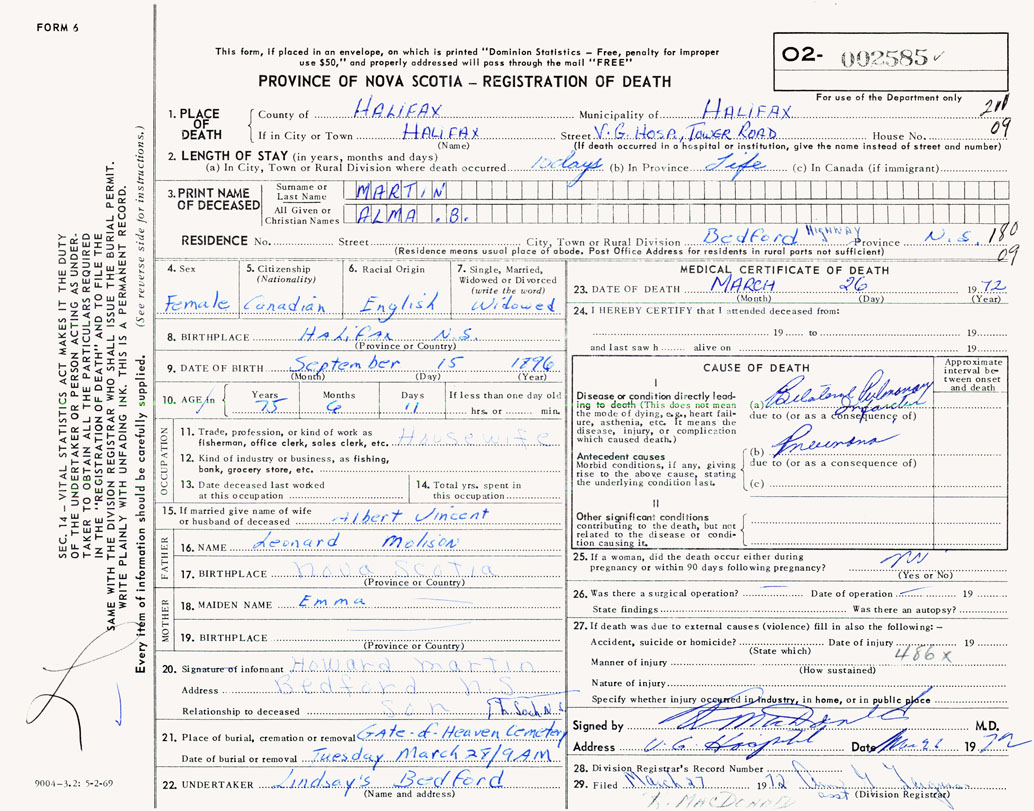 FORM 6
This form, if placed in an envelope, on which is printed "Dominion Statistics – Free, penalty for improper
use $50," and properly addressed will pass through the mail "FREE"
PROVINCE OF NOVA SCOTIA – REGISTRATION OF DEATH
O2- 002585
For use of the Department only
1. PLACE OF DEATH
County of HALIFAX Municipality of HALIFAX
If in City or Town HALIFAX Street V.G. HOSP, TOWER ROAD House No. 09
(Name) (If death occurred in a hospital or institution, give the name instead of street and number)
2. LENGTH OF STAY (in years, months and days)
(a) In City, Town or Rural Division where death occurred days (b) In Province Life (c) In Canada (if immigrant)
3. PRINT NAME OF DECEASED
Surname or Last Name MARTIN
All Given or Christian Names ALMA .B.
RESIDENCE No. Street City, Town or Rural Division Bedford HIGHWAY Province N.S. 180
(Residence means usual place of abode. Post Office Address for residents in rural parts not sufficient) 09
4. Sex
Female
5. Citizenship
(Nationality)
Canadian
6. Racial Origin
English
7. Single, Married,
Widowed or Divorced
(write the word)
Widowed
8. BIRTHPLACE HALIFAX N.S.
(Province or Country)
9. DATE OF BIRTH September 15 1896
(Month) (Day) (Year)
10. AGE Years 75 Months 6 Days 11 If less than one day old
hrs. or min.
OCCUPATION
11. Trade, profession, or kind of work as
fisherman, office clerk, sales clerk, etc. Housewife
12. Kind of industry or business, as fishing,
bank, grocery store, etc.
13. Date deceased last worked
at this occupation
14. Total yrs. spent in
this occupation
15. If married give name of wife
or husband of deceased Albert Vincent
FATHER
16. NAME Leonard Molison
17. BIRTHPLACE Nova Scotia
(Province or Country)
MOTHER
18. MAIDEN NAME Emma
19. BIRTHPLACE
(Province or Country)
20. Signature of informant Howard Martin
Address Bedford N.S.
Relationship to deceased Son
21. Place of burial, cremation or removal Gate-of-Heaven Cemetery
Date of burial or removal Tuesday March 28/9AM
22. UNDERTAKER Lindsay's Bedford
(Name and address)
MEDICAL CERTIFICATE OF DEATH
23. DATE OF DEATH MARCH 26 1972
(Month) (Day) (Year)
24. I HEREBY CERTIFY that I attended deceased from:
19 to 19
and last saw h alive on 19
CAUSE OF DEATH
Approximate interval between onset and death
I
Disease or condition directly leading to death (This does not mean
the mode of dying, e.g., heart failure, asthenia, etc. It means the
disease, injury, or complication
which caused death.)
(a) Bilateral Pulmonary
due to (or as a consequence of)
Infarction
Antecedent causes
Morbid conditions, if any, giving
rise to the above cause, stating
the underlying condition last.
(b) Pneumonia
due to (or as a consequence of)
(c)
II
Other significant conditions
contributing to the death, but not
related to the disease or condition causing it.
25. If a woman, did the death occur either during
pregnancy or within 90 days following pregnancy? No
(Yes or No)
26. Was there a surgical operation? Date of operation 19
State findings Was there an autopsy?
27. If death was due to external causes (violence) fill in also the following: –
Accident, suicide or homicide? Date of injury 19
(State which) 486x
Manner of injury
(How sustained)
Nature of injury
Specify whether injury occurred in industry, in home, or in public place
Signed by MacDonald M.D.
Address V.G. Hospital Date Mar 26 1972
28. Division Registrar's Record Number
29. Filed March 27 1972
(Division Registrar)
MACDONALD
SEC. 14 – VITAL STATISTICS ACT MAKES IT THE DUTY
OF THE UNDERTAKER OR PERSON ACTING AS UNDER-
TAKER TO OBTAIN ALL THE PARTICULARS REQUIRED
IN THE "REGISTRATION OF DEATH" AND TO FILE THE
SAME WITH THE DIVISION REGISTRAR WHO SHALL ISSUE THE BURIAL PERMIT.
WRITE PLAINLY WITH UNFADING INK. THIS IS A PERMANENT RECORD.
Every item of information should be carefully supplied. (See reverse side for instructions.)
9004-3.2: 5-2-69